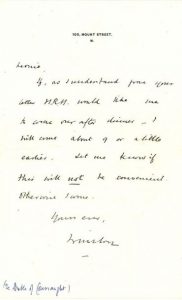 105, MOUNT STREET,
W.
Leonie
If, as I understand from your
letter H.R.H. would like me
to come over after dinner - I
will come about 9 or a little
earlier. Let me know if
this will not be convenient.
Otherwise I come.
Yours ever,
Winston